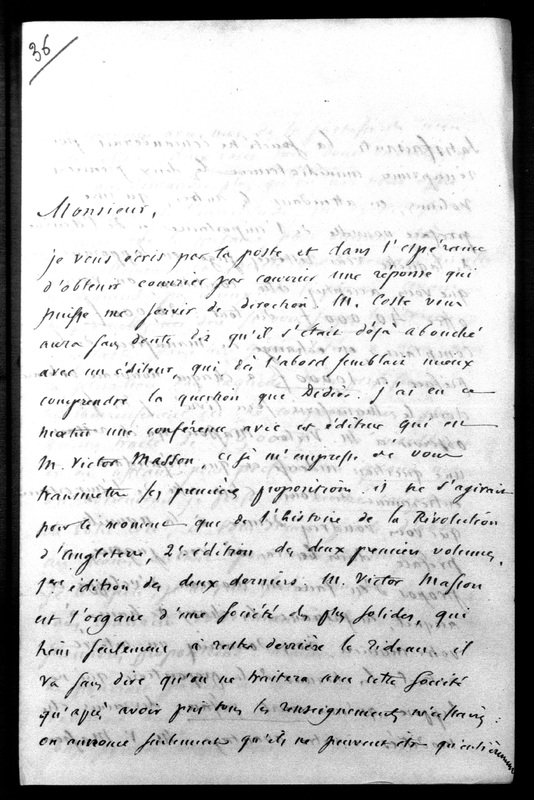 36
Monsieur,
je vous écris par la poste et dans l'espérance
d'obtenir courrier par courrier une réponse qui
puisse me servir de direction. M. Coste vous
aura sans doute dit qu'il s'était déjà abouché
avec un éditeur, qui dès l'abord semblait mieux
comprendre la question que Didier. j'ai eu ce
matin une conférence avec cet éditeur qui est
M. Victor Masson, et je m'empresse de vous
transmettre ses premières propositions. il ne s'agirait
pour le moment que de l'histoire de la Révolution
d'Angleterre, 2e édition des deux premiers volumes,
1ère édition des deux derniers. M. Victor Masson
est l'organe d'une société des plus solides, qui
tient seulement à rester derrière le rideau. il
va sans dire qu'on ne traitera avec cette société
qu'après avoir pris tous les renseignements nécessaires :
on annonce seulement qu'ils ne peuvent être qu'entièrement